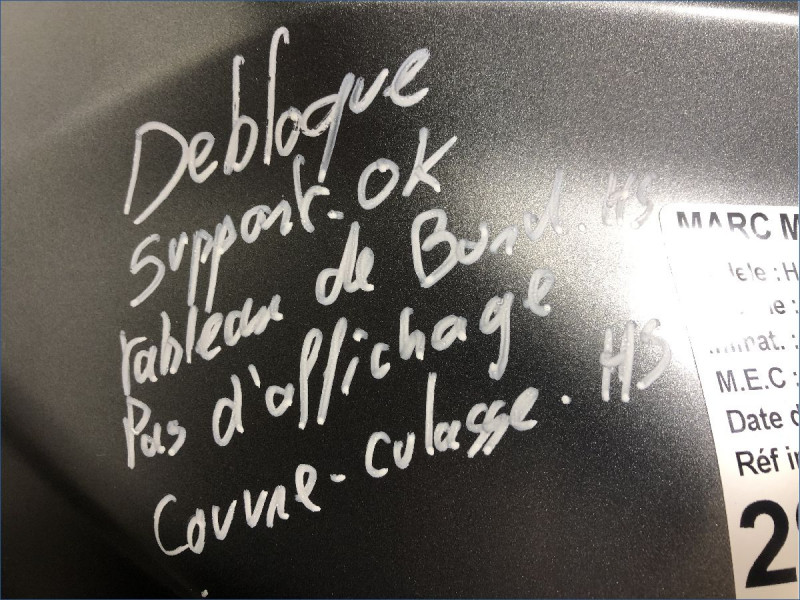 Debloque
support. OK
tableau de Bord. HS
Pas d'affichage
Couvre-culasse. HS
MARC M
dele : H
e :
mat. :
M.E.C :
Date d
Réf in
2